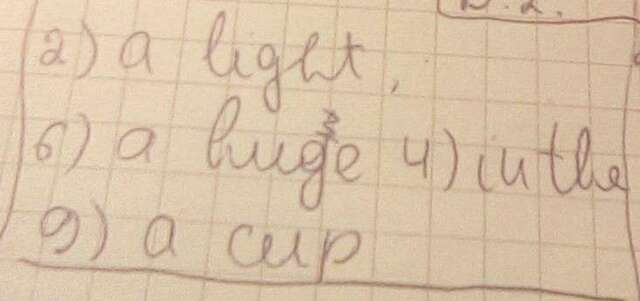 2) a light,
6) a huge 4) in the
9) a cup